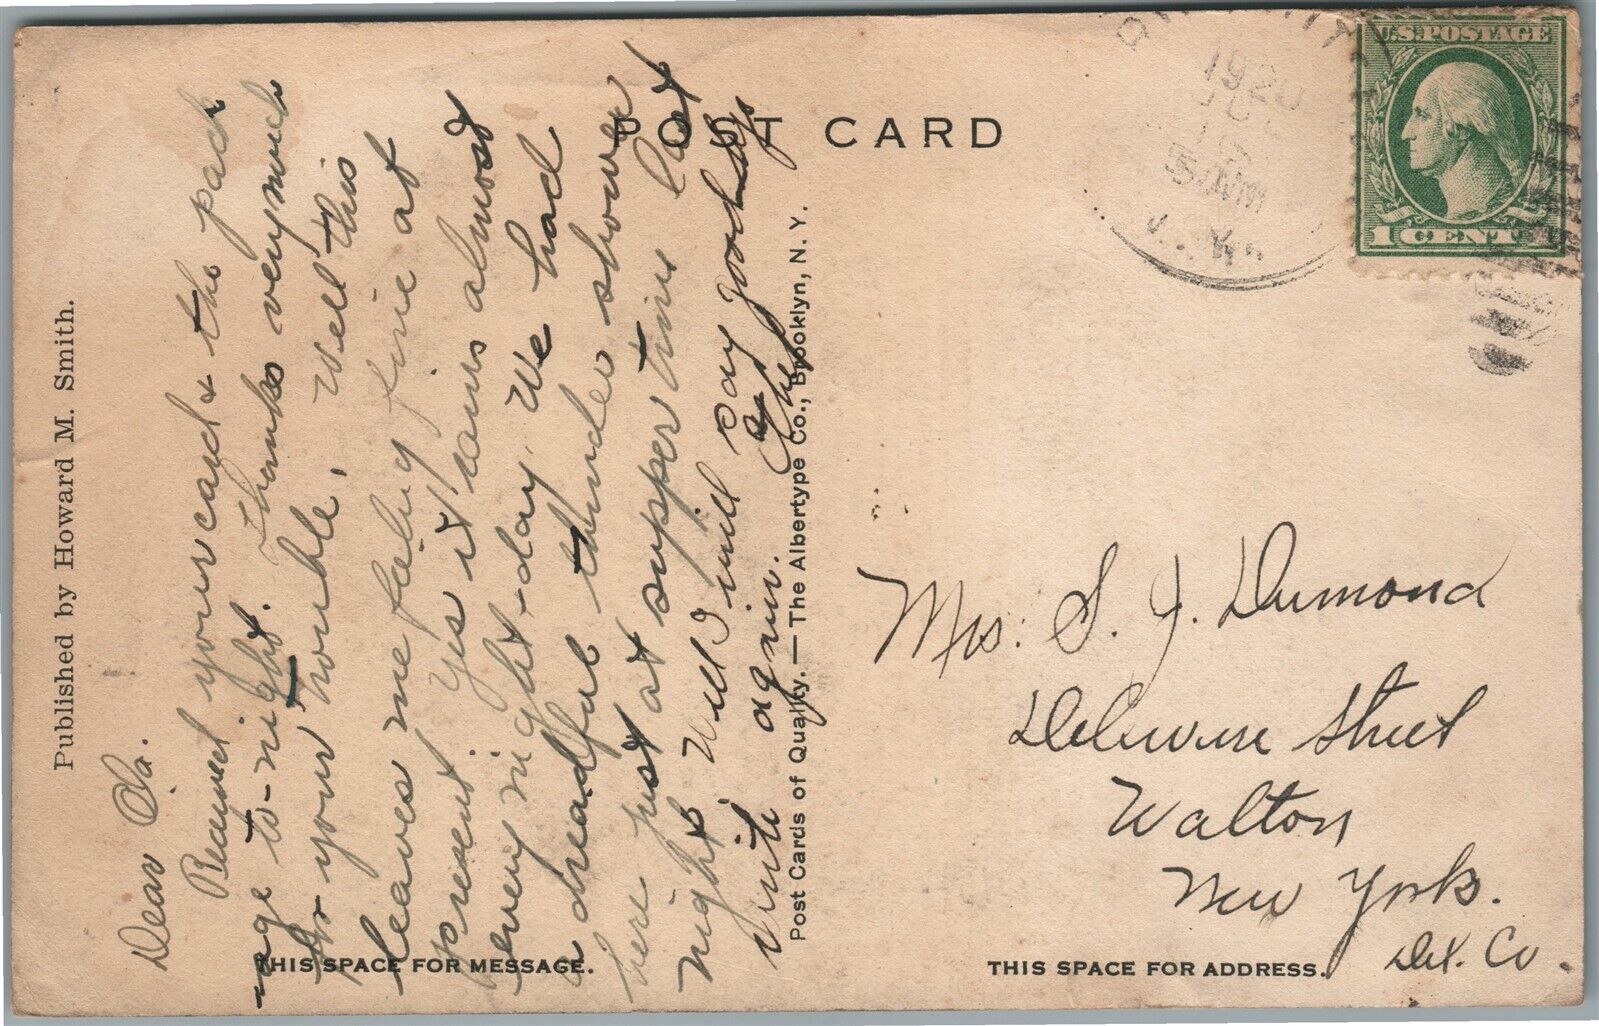 Published by Howard M. Smith.
POST CARD
Dear
Received your card & the pack
age to-night. Thanks very much
for your trouble, Well this
leaves me feeling fine at
present. Yes it rains almost
every night & day. We had
a dreadful thunder shower
here just at supper time last
night. Well I will say good bye
Write again.
THIS SPACE FOR MESSAGE.
Post Cards of Quality.—The Albertype Co., Brooklyn, N. Y.
1920
5 AM
N.Y.
U.S. POSTAGE
1 CENT 1
Mrs. S. J. Dumond
Delaware Street
Walton
New York.
Del. Co.
THIS SPACE FOR ADDRESS.